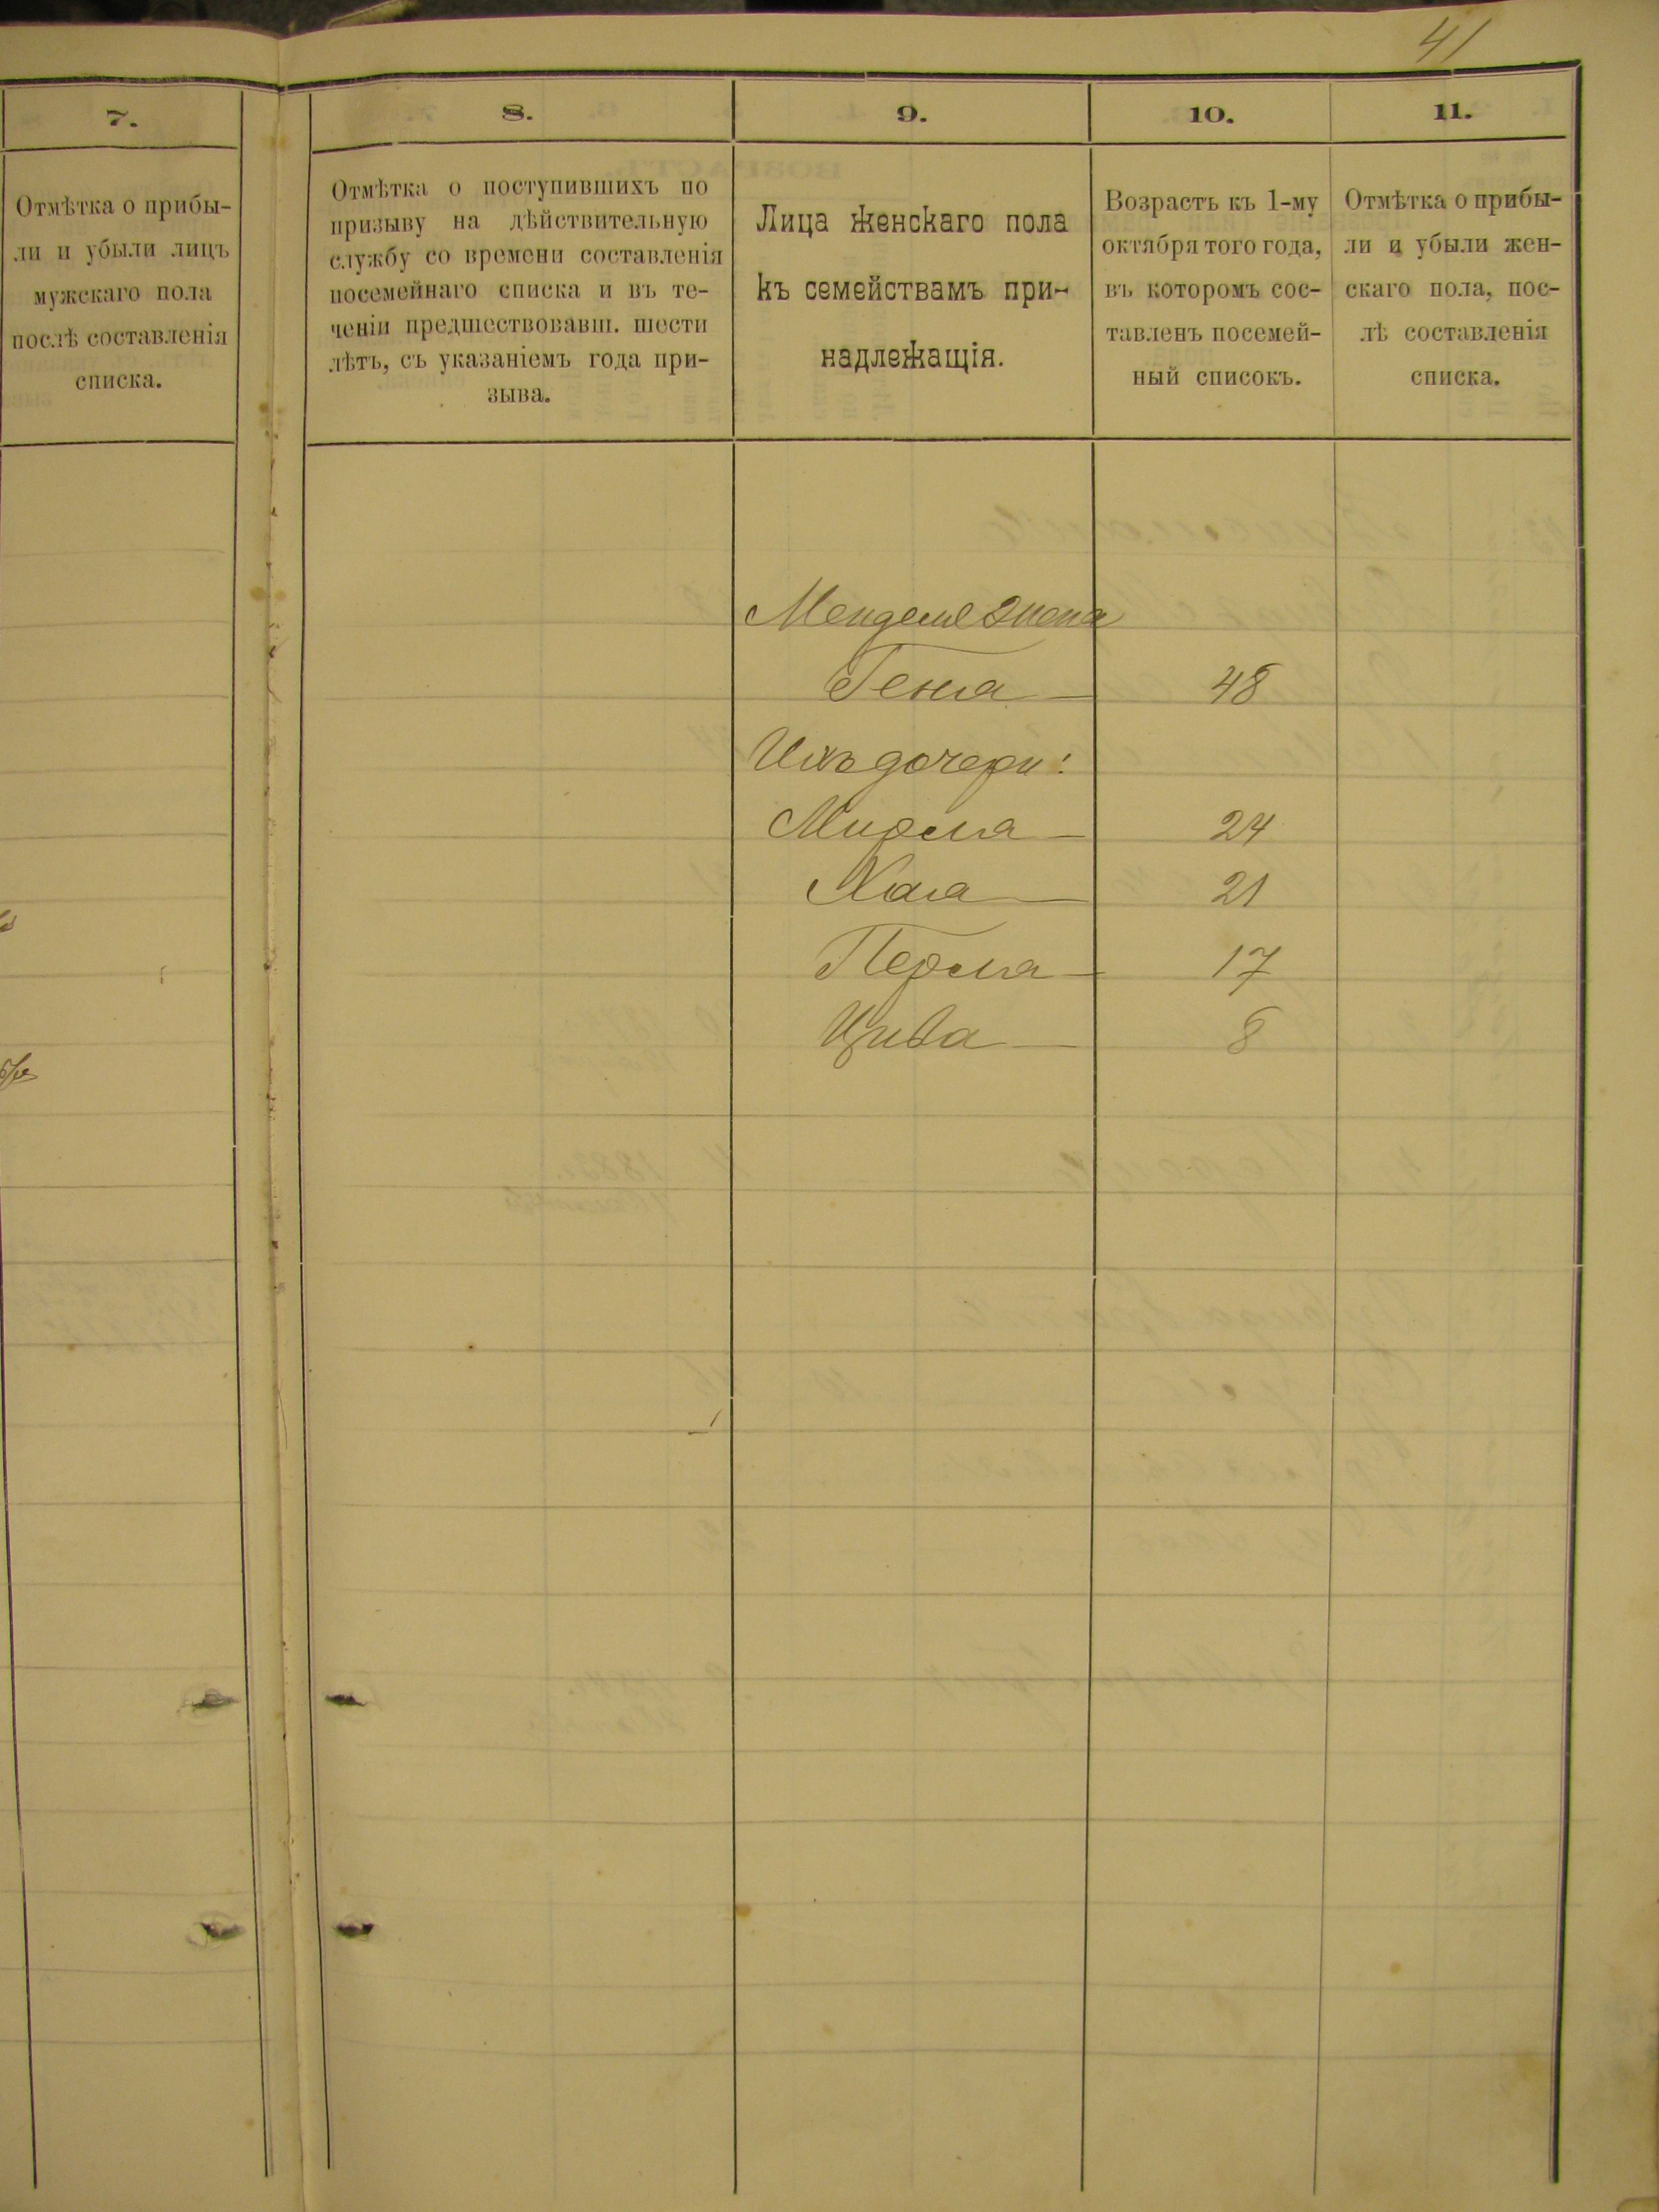 41
7.
8.
9.
10.
11.
Отмѣтка о прибы-
ли и убыли лицъ
мужскаго пола
послѣ составленія
списка.
Отмѣтка о поступившихъ по
призыву на дѣйствительную
службу со времени составленія
посемейнаго списка и въ те-
ченіи предшествовавш. шести
лѣтъ, съ указаніемъ года при-
зыва.
Лица женскаго пола
къ семействамъ при-
надлежащія.
Возрастъ къ 1-му
октября того года,
въ которомъ сос-
тавленъ посемей-
ный списокъ.
Отмѣтка о прибы-
ли и убыли жен-
скаго пола, пос-
лѣ составленія
списка.
Менделя жена
Геня — 48
Ихъ дочери:
Мирля — 24
Хая — 21
Перля — 17
Цива — 8